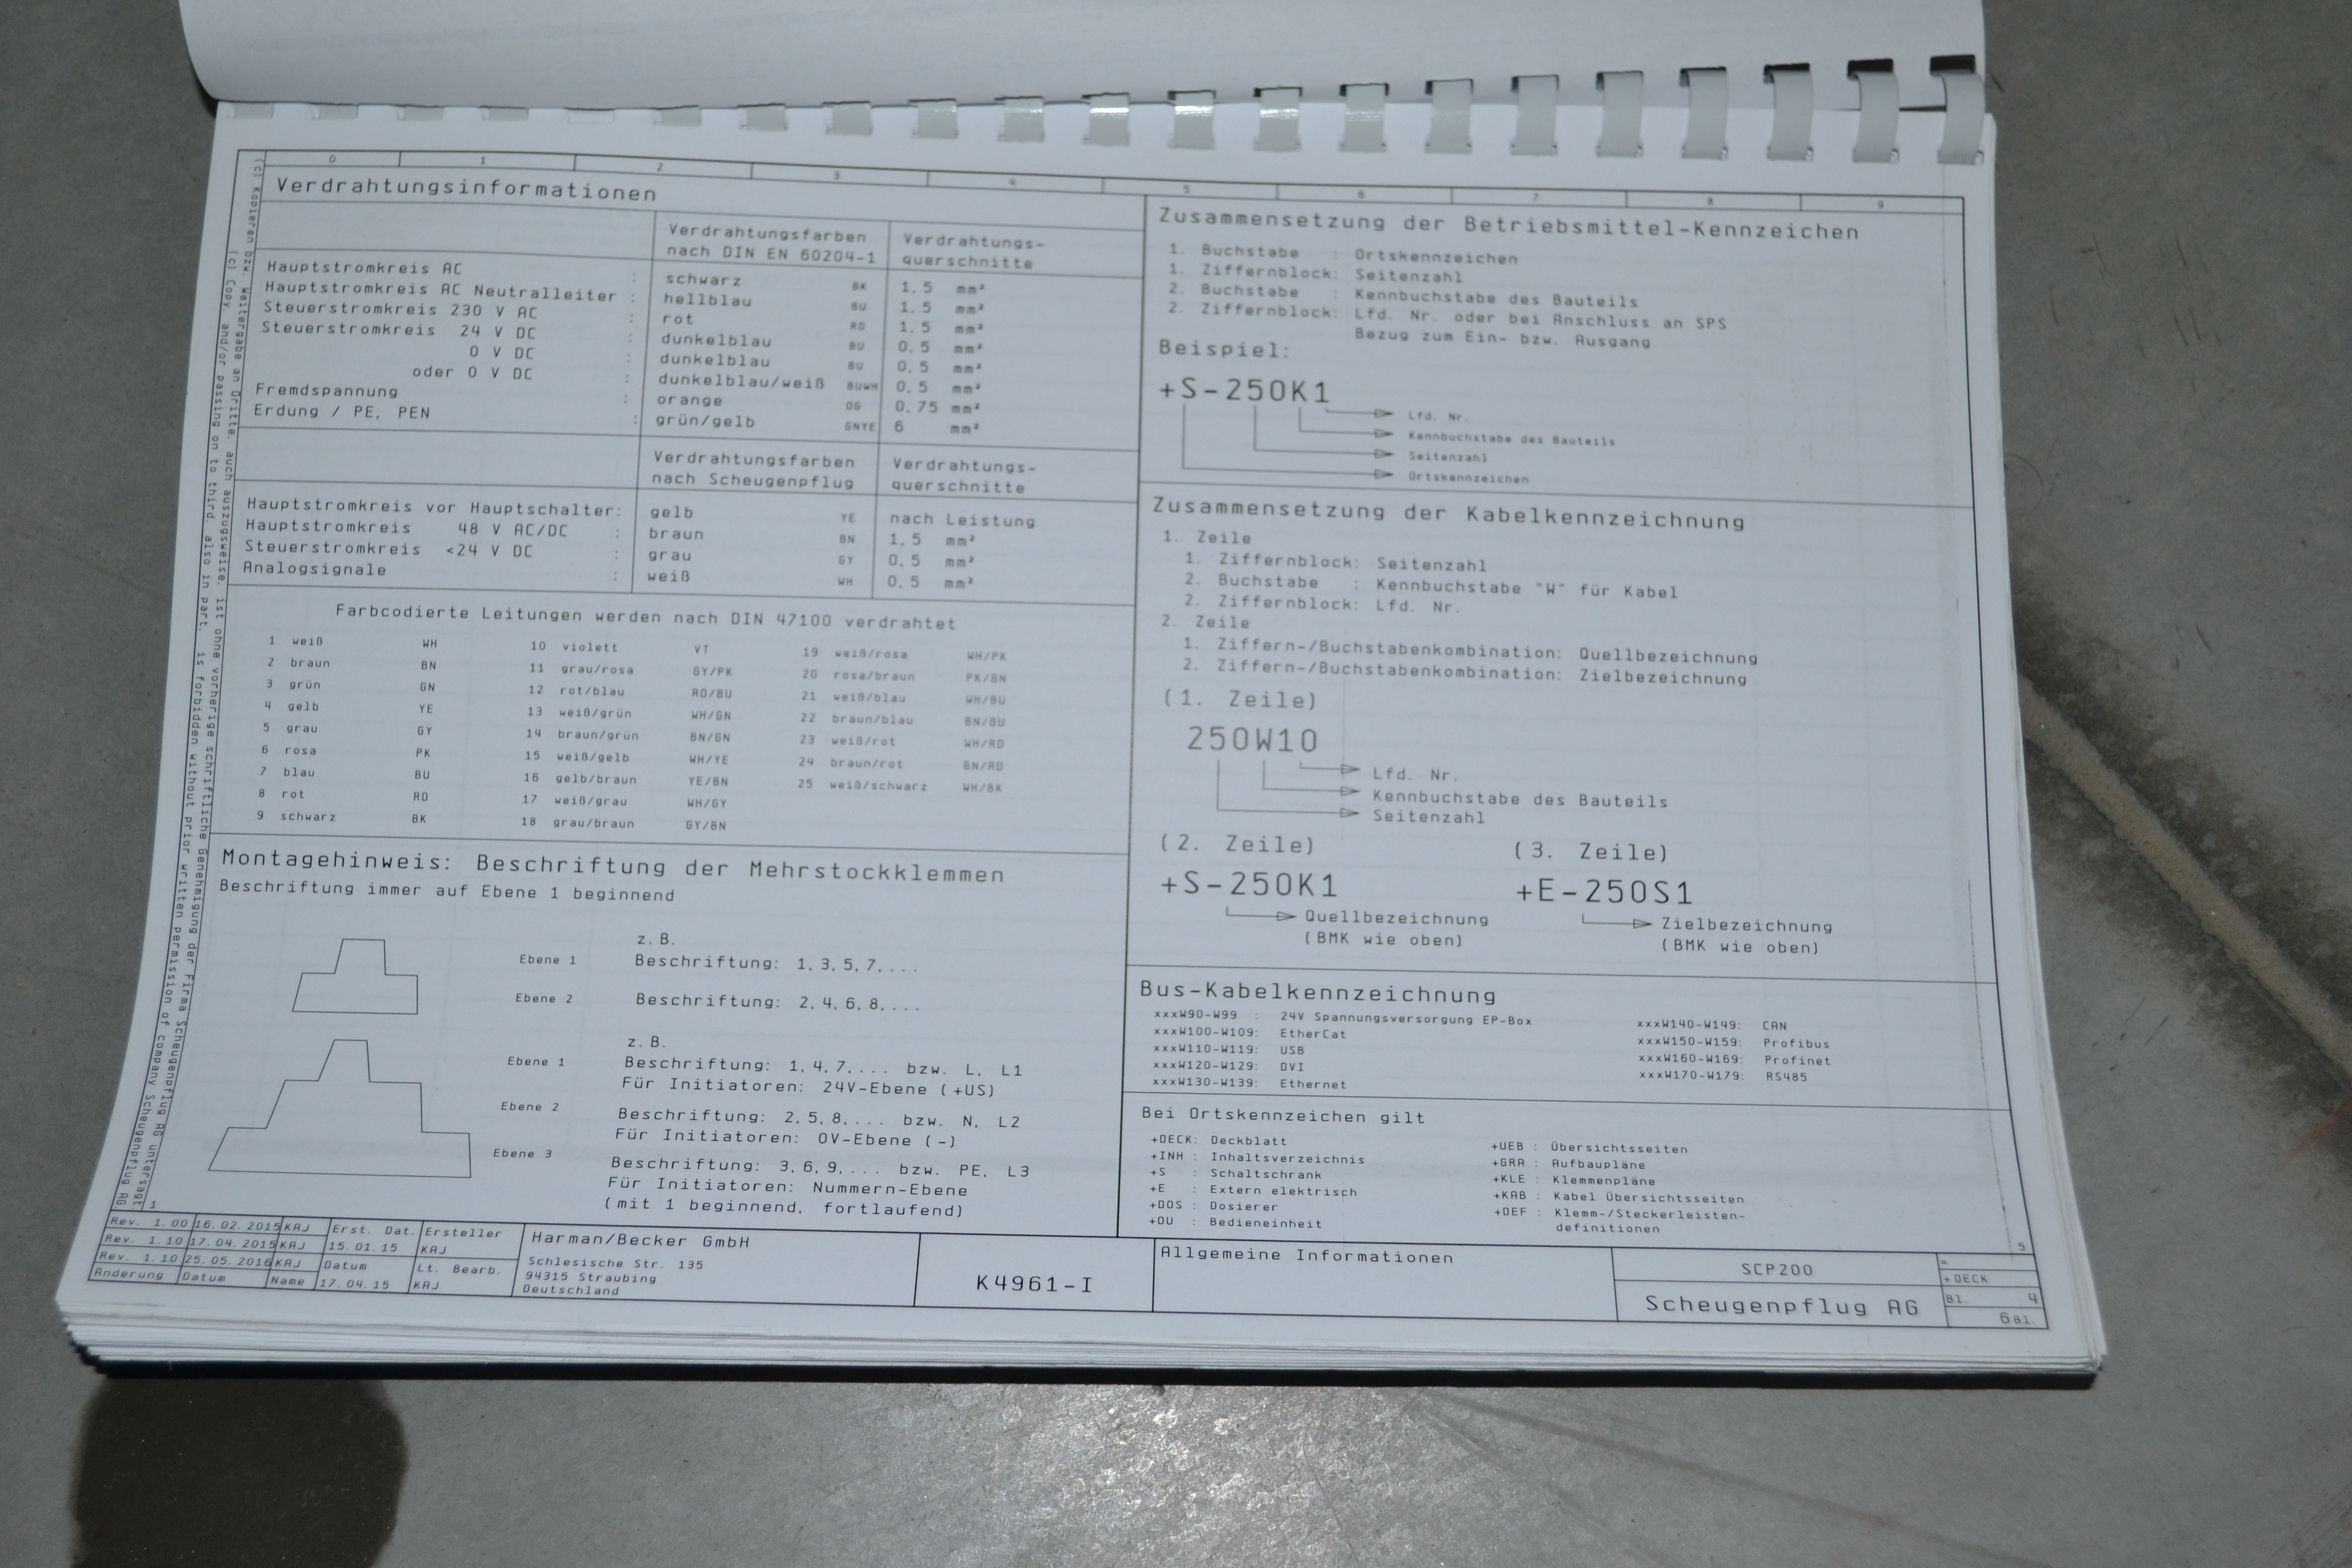 0 1 2 3 4 5 6 7 8 9
Verdrahtungsinformationen
Verdrahtungsfarben
nach DIN EN 60204-1
Verdrahtungs-
querschnitte
Hauptstromkreis AC : schwarz BK 1,5 mm²
Hauptstromkreis AC Neutralleiter : hellblau BU 1,5 mm²
Steuerstromkreis 230 V AC : rot RD 1,5 mm²
Steuerstromkreis 24 V DC : dunkelblau BU 0,5 mm²
0 V DC : dunkelblau BU 0,5 mm²
oder 0 V DC : dunkelblau/weiß BUWH 0,5 mm²
Fremdspannung : orange OG 0,75 mm²
Erdung / PE, PEN : grün/gelb GNYE 6 mm²
Verdrahtungsfarben
nach Scheugenpflug
Verdrahtungs-
querschnitte
Hauptstromkreis vor Hauptschalter: gelb YE nach Leistung
Hauptstromkreis 48 V AC/DC : braun BN 1,5 mm²
Steuerstromkreis <24 V DC : grau GY 0,5 mm²
Analogsignale : weiß WH 0,5 mm²
Farbcodierte Leitungen werden nach DIN 47100 verdrahtet
1 weiß WH 10 violett VT 19 weiß/rosa WH/PK
2 braun BN 11 grau/rosa GY/PK 20 rosa/braun PK/BN
3 grün GN 12 rot/blau RD/BU 21 weiß/blau WH/BU
4 gelb YE 13 weiß/grün WH/GN 22 braun/blau BN/BU
5 grau GY 14 braun/grün BN/GN 23 weiß/rot WH/RD
6 rosa PK 15 weiß/gelb WH/YE 24 braun/rot BN/RD
7 blau BU 16 gelb/braun YE/BN 25 weiß/schwarz WH/BK
8 rot RD 17 weiß/grau WH/GY
9 schwarz BK 18 grau/braun GY/BN
Montagehinweis: Beschriftung der Mehrstockklemmen
Beschriftung immer auf Ebene 1 beginnend
z.B.
Ebene 1 Beschriftung: 1,3,5,7,...
Ebene 2 Beschriftung: 2,4,6,8,...
z.B.
Ebene 1 Beschriftung: 1,4,7,... bzw. L, L1
Für Initiatoren: 24V-Ebene (+US)
Ebene 2 Beschriftung: 2,5,8,... bzw. N, L2
Für Initiatoren: 0V-Ebene (-)
Ebene 3 Beschriftung: 3,6,9,... bzw. PE, L3
Für Initiatoren: Nummern-Ebene
(mit 1 beginnend, fortlaufend)
Zusammensetzung der Betriebsmittel-Kennzeichen
1. Buchstabe : Ortskennzeichen
1. Ziffernblock: Seitenzahl
2. Buchstabe : Kennbuchstabe des Bauteils
2. Ziffernblock: Lfd. Nr. oder bei Anschluss an SPS
Bezug zum Ein- bzw. Ausgang
Beispiel:
+S-250K1
Lfd. Nr.
Kennbuchstabe des Bauteils
Seitenzahl
Ortskennzeichen
Zusammensetzung der Kabelkennzeichnung
1. Zeile
1. Ziffernblock: Seitenzahl
2. Buchstabe : Kennbuchstabe "W" für Kabel
2. Ziffernblock: Lfd. Nr.
2. Zeile
1. Ziffern-/Buchstabenkombination: Quellbezeichnung
2. Ziffern-/Buchstabenkombination: Zielbezeichnung
(1. Zeile)
250W10
Lfd. Nr.
Kennbuchstabe des Bauteils
Seitenzahl
(2. Zeile) (3. Zeile)
+S-250K1 +E-250S1
Quellbezeichnung Zielbezeichnung
(BMK wie oben) (BMK wie oben)
Bus-Kabelkennzeichnung
xxxW90-W99 : 24V Spannungsversorgung EP-Box
xxxW100-W109: EtherCat
xxxW110-W119: USB
xxxW120-W129: DVI
xxxW130-W139: Ethernet
xxxW140-W149: CAN
xxxW150-W159: Profibus
xxxW160-W169: Profinet
xxxW170-W179: RS485
Bei Ortskennzeichen gilt
+DECK: Deckblatt
+INH : Inhaltsverzeichnis
+S : Schaltschrank
+E : Extern elektrisch
+DOS : Dosierer
+OU : Bedieneinheit
+UEB : Übersichtsseiten
+GRA : Aufbaupläne
+KLE : Klemmenpläne
+KAB : Kabel Übersichtsseiten
+DEF : Klemm-/Steckerleisten-
definitionen
(c) Kopieren bzw. Weitergabe an Dritte, auch auszugsweise, ist ohne vorherige schriftliche Genehmigung der Firma Scheugenpflug AG untersagt.
(c) Copy, and/or passing on to third, also in part, is forbidden without prior written permission of company Scheugenpflug AG
1
5
Rev. 1.00 16.02.2015 KAJ
Rev. 1.10 17.04.2015 KAJ
Rev. 1.10 25.05.2016 KAJ
Änderung Datum Name
Erst. Dat. Ersteller
15.01.15 KAJ
Datum Lt. Bearb.
17.04.15 KAJ
Harman/Becker GmbH
Schlesische Str. 135
94315 Straubing
Deutschland
K4961-I
Allgemeine Informationen
SCP200
Scheugenpflug AG
=
+DECK
Bl. 4
6 Bl.